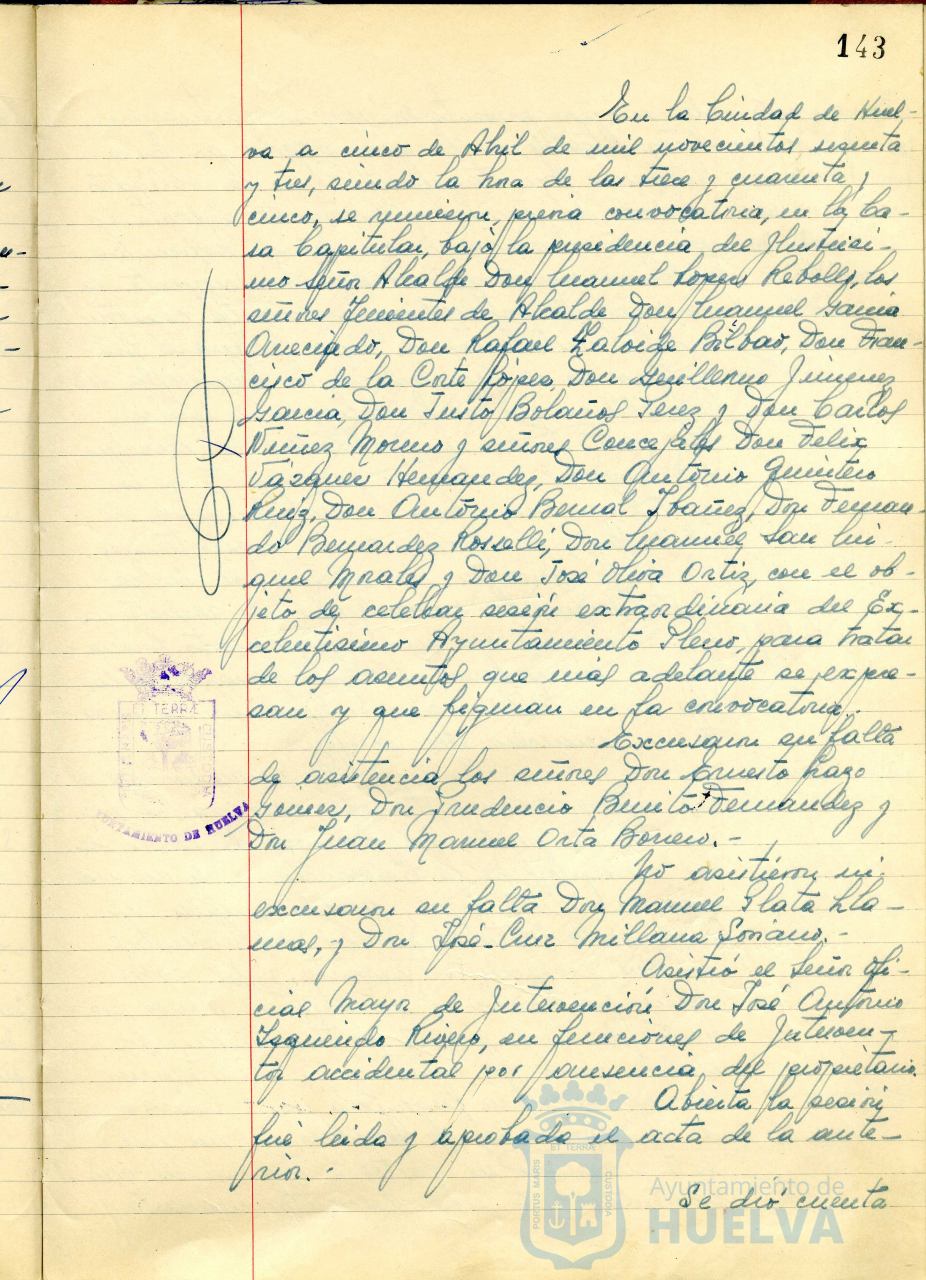 143
En la Ciudad de Huel-
va a cinco de Abril de mil novecientos sesenta
y tres, siendo la hora de las trece y cuarenta y
cinco, se reunieron, previa convocatoria, en la Ca-
sa Capitular, bajo la presidencia del Ilustrisi-
mo señor Alcalde Don Manuel López Rebollo, los
señores Tenientes de Alcalde Don Manuel Garcia
Don Rafael Zalvide Bilbao, Don Fran-
cisco de la Corte López, Don Guillermo Jimenez
Garcia, Don Justo Bolaños Perez y Don Carlos
Nuñez Moreno y señores Concejales Don Felix
Vázquez Hernandez, Don Antonio Quintero
Ruiz, Don Antonio Bernal Ibañez, Don Fernan-
do Bernardez Rosselli, Don Manuel San Mi-
guel Morales y Don José Oliva Ortiz, con el ob-
jeto de celebrar sesión extraordinaria del Ex-
celentisimo Ayuntamiento Pleno, para tratar
de los asuntos que más adelante se expre-
san y que figuran en la convocatoria.
Excusaron su falta
de asistencia los señores Don Ernesto Lazo
Gómez, Don Prudencio Benito Fernandez y
Don Juan Manuel Orta Borrero.-
No asistieron ni
excusaron su falta Don Manuel Plata Lla-
mas, y Don José-Cruz Millana Soriano.-
Asistió el Señor Ofi-
cial Mayor de Intervención Don José Antonio
Izquierdo Rivero, en funciones de Interven-
tor accidental por ausencia del propietario.
Abierta la sesión
fué leida y aprobada el acta de la ante-
rior.-
Se dió cuenta
ET TERRÆ
AYUNTAMIENTO DE HUELVA
ET TERRÆ
PORTUS MARIS
CUSTODIA
Ayuntamiento de
HUELVA